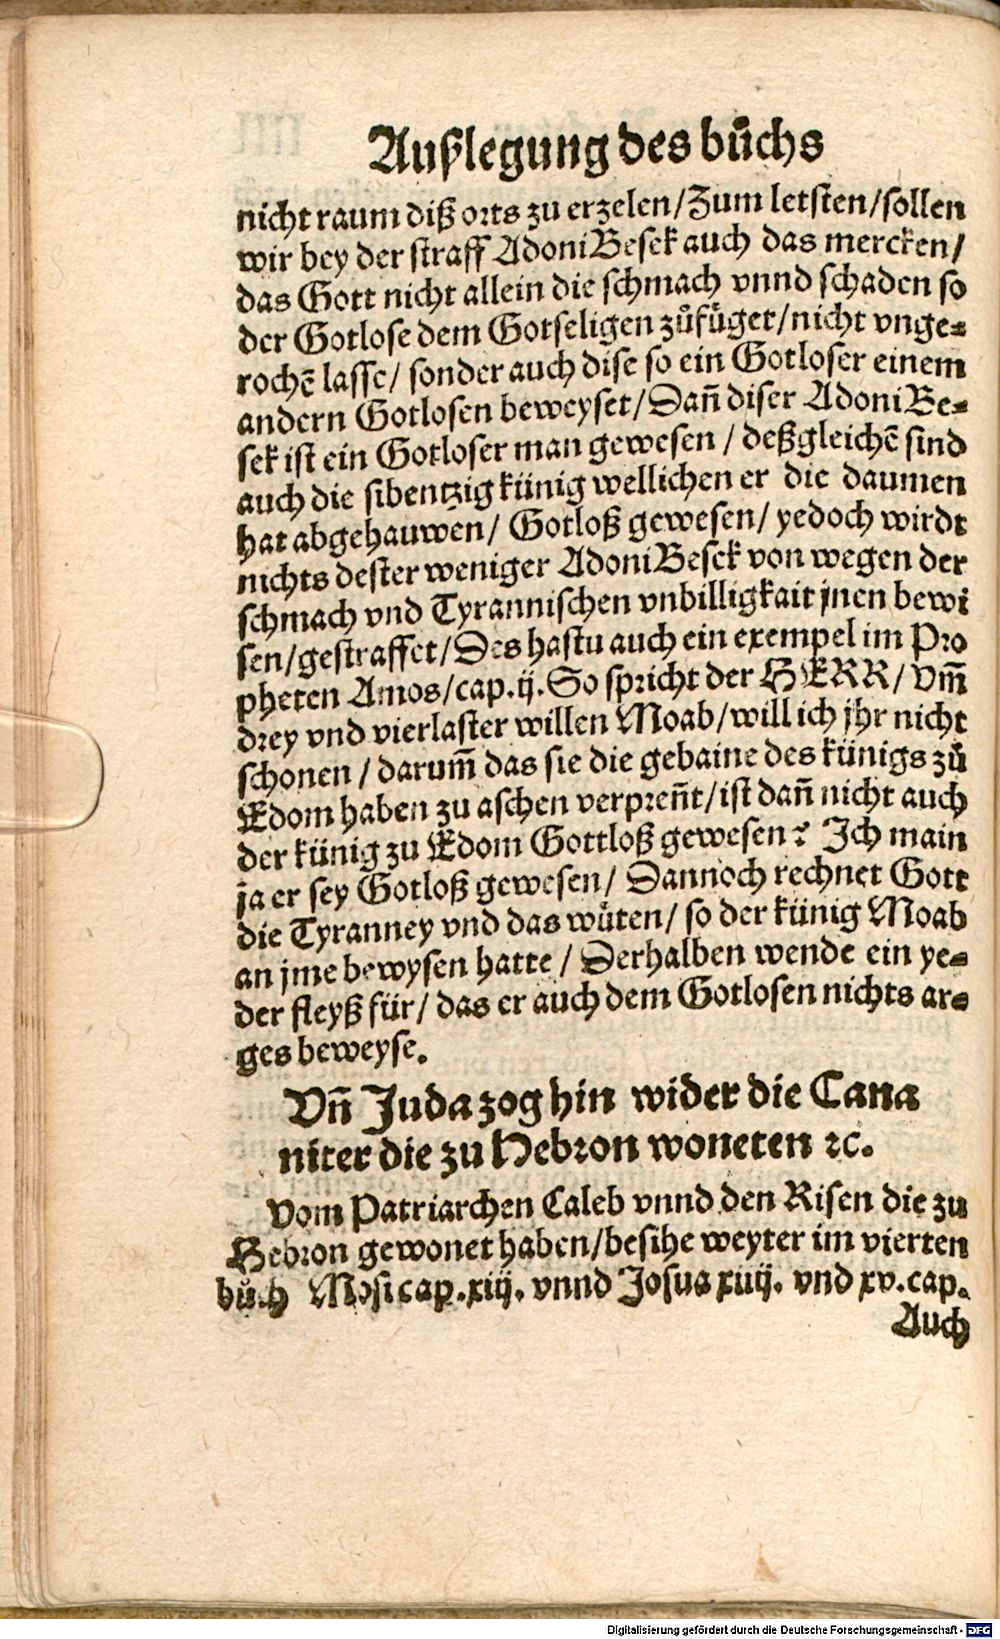 Außlegung des bůchs
nicht raum diß orts zu erzelen/Zum letsten/sollen
wir bey der straff AdoniBesek auch das mercken/
das Gott nicht allein die schmach vnnd schaden so
der Gotlose dem Gotseligen zůfüget/nicht vnge-
rochē lasse/ sonder auch dise so ein Gotloser einem
andern Gotlosen beweyset/Dañ diser AdoniBe-
sek ist ein Gotloser man gewesen / deßgleichē sind
auch die sibentzig künig wellichen er die daumen
hat abgehauwen/ Gotloß gewesen/ yedoch wirdt
nichts dester weniger AdoniBesek von wegen der
schmach vnd Tyrannischen vnbilligkait jnen bewi
sen/gestraffet/Des hastu auch ein exempel im Pro
pheten Amos/cap.ij.So spricht der HERR/ Vm̃
drey vnd vierlaster willen Moab/will ich jhr nicht
schonen / darum̃ das sie die gebaine des künigs zů
Edom haben zu aschen verpreñt/ist dañ nicht auch
der künig zu Edom Gottloß gewesen? Ich main
ja er sey Gotloß gewesen/ Dannoch rechnet Gott
die Tyranney vnd das wüten/ so der künig Moab
an jme bewysen hatte / Derhalben wende ein ye-
der fleyß für/ das er auch dem Gotlosen nichts ar-
ges beweyse.
Vñ Juda zog hin wider die Cana
niter die zu Hebron woneten ꝛc.
Vom Patriarchen Caleb vnnd den Risen die zu
Hebron gewonet haben/besihe weyter im vierten
bůch Mosi cap.xiij. vnnd Josua xiiij. vnd xv.cap.
Auch
Digitalisierung gefördert durch die Deutsche Forschungsgemeinschaft - DFG